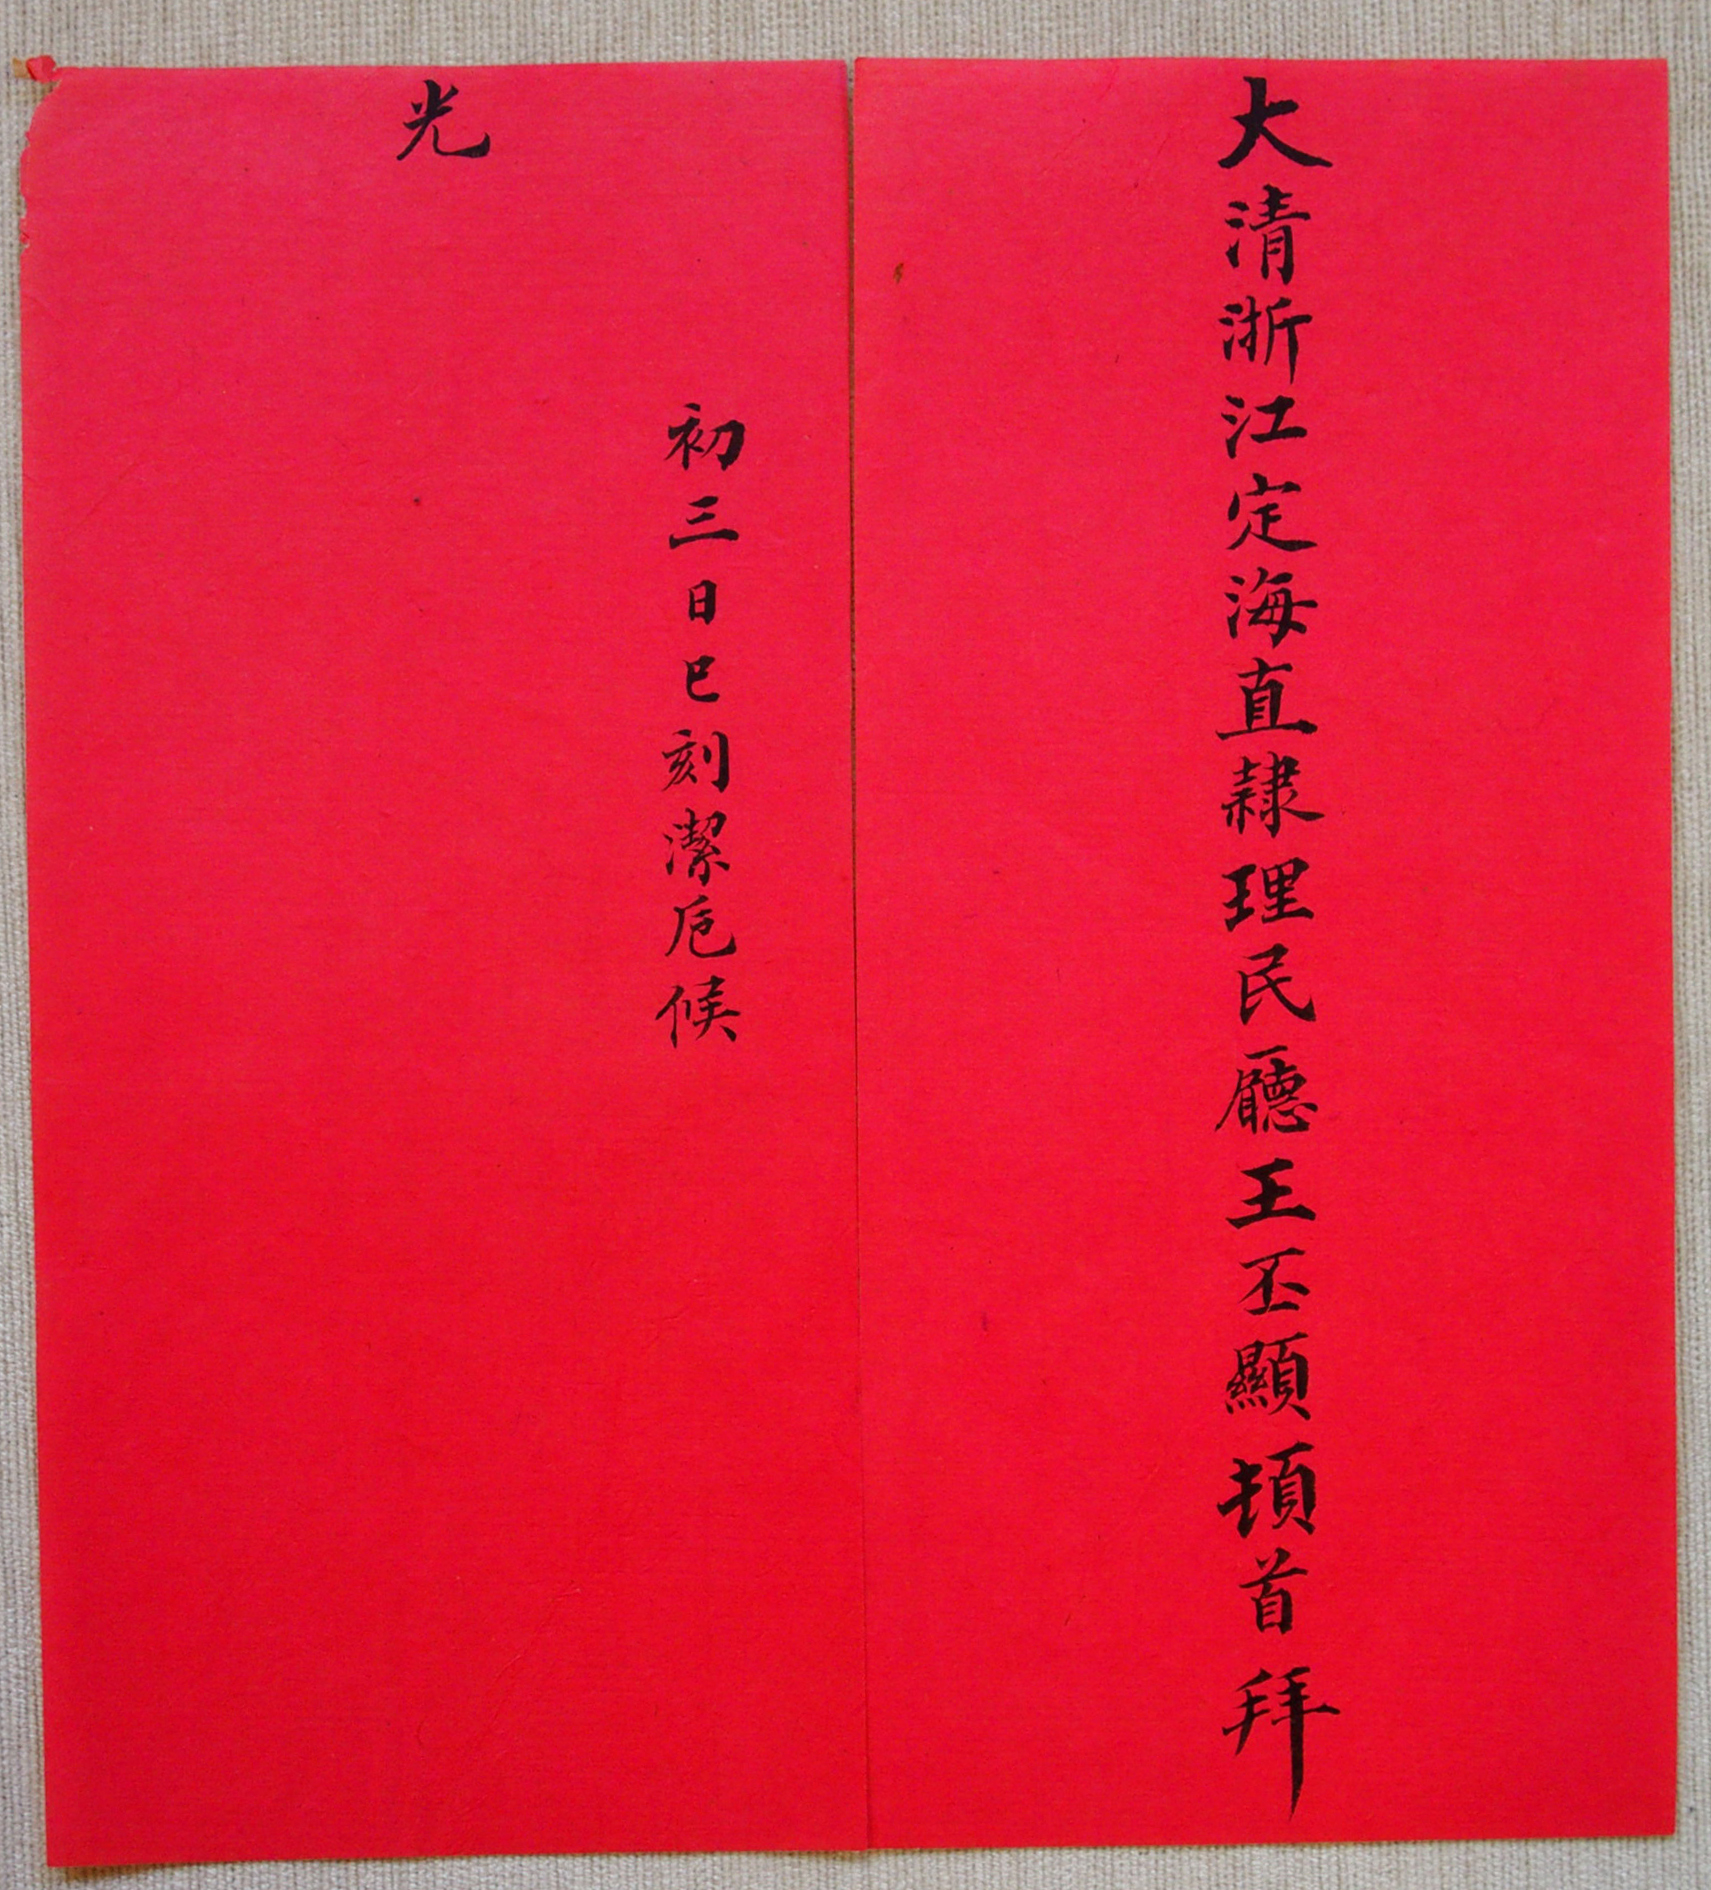 大清浙江定海直隸理民廳王丕顯頓首拜
初三日巳刻潔卮候
光